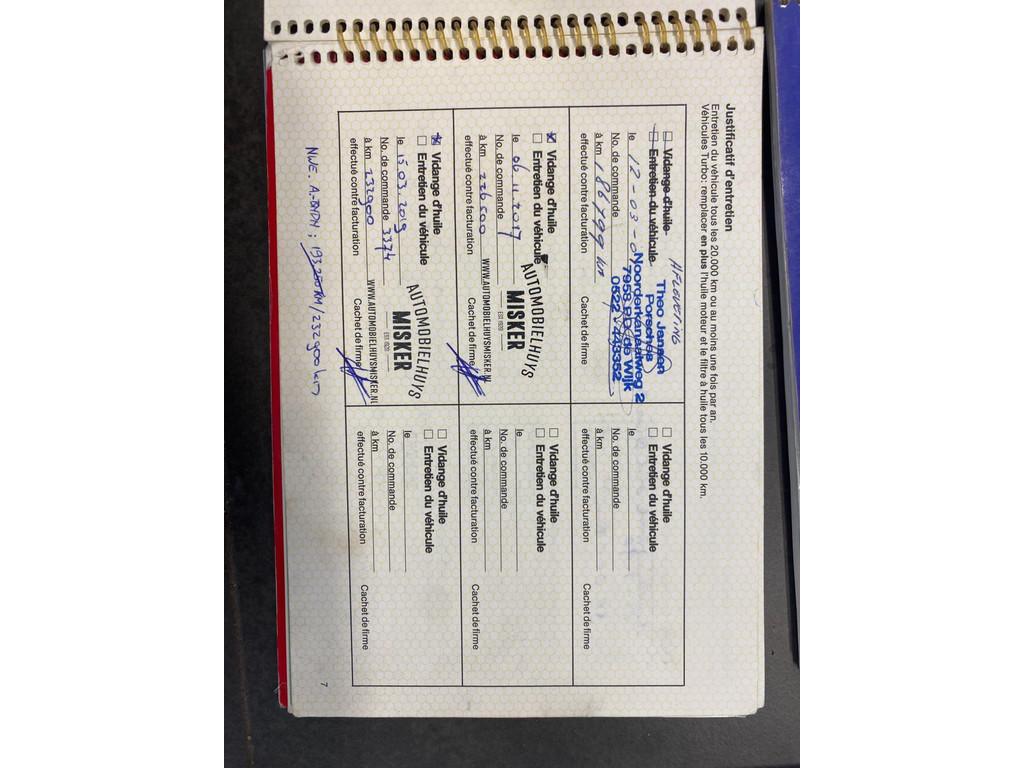 Justificatif d'entretien
Entretien du véhicule tous les 20.000 km ou au moins une fois par an.
Véhicules Turbo: remplacer en plus l'huile moteur et le filtre à huile tous les 10.000 km.
Vidange d'huile
Entretien du véhicule
AFLEVERING
le 12-03-0
No. de commande
à km 186799 km
effectué contre facturation
Cachet de firme
Theo Jansen
Porsches
Noorderkanaalweg 2
7958 PD de Wijk
0522 - 443352
Vidange d'huile
Entretien du véhicule
le
No. de commande
à km
effectué contre facturation
Cachet de firme
Vidange d'huile
Entretien du véhicule
le 06.11.2017
No. de commande
à km 226500
effectué contre facturation
Cachet de firme
AUTOMOBIELHUYS
MISKER
EST. 1920
WWW.AUTOMOBIELHUYSMISKER.NL
Vidange d'huile
Entretien du véhicule
le
No. de commande
à km
effectué contre facturation
Cachet de firme
Vidange d'huile
Entretien du véhicule
le 15.03.2019
No. de commande 3374
à km 232900
effectué contre facturation
Cachet de firme
AUTOMOBIELHUYS
MISKER
EST. 1920
WWW.AUTOMOBIELHUYSMISKER.NL
Vidange d'huile
Entretien du véhicule
le
No. de commande
à km
effectué contre facturation
Cachet de firme
NWE. A.-BNDN; 193250KM/232900km
7